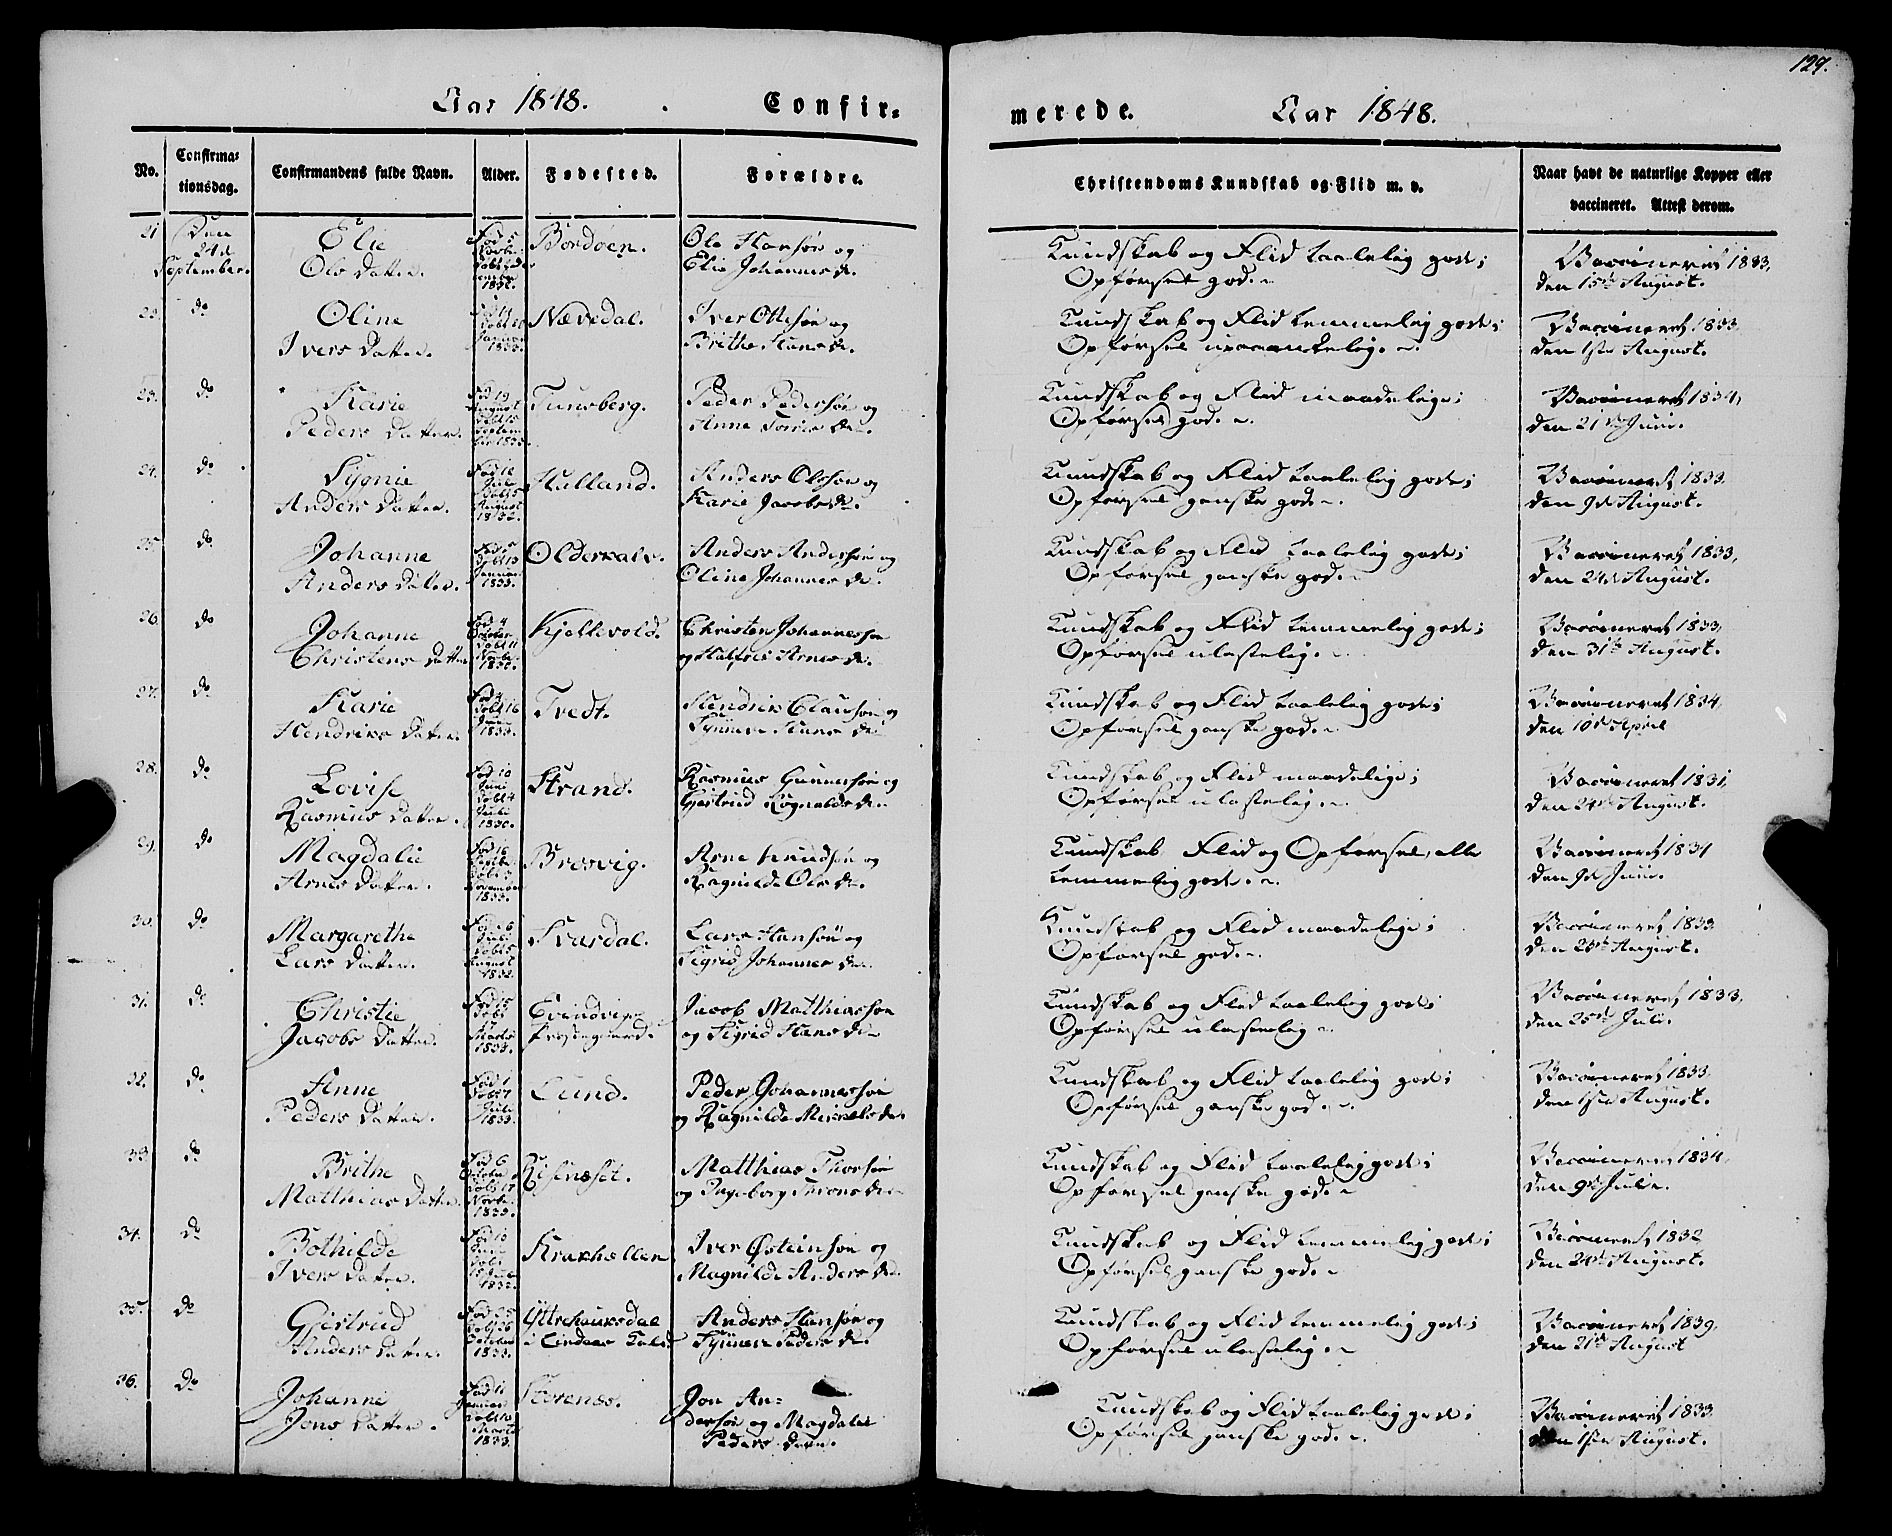 129.
Aar 1848.
Confir-
merede.
Aar 1848.
No.
Confirma-
tionsdag.
Confirmandens fulde Navn.
Alder.
Fødested.
Forældre.
Christendoms Kundskab og Flid m. v.
Naar havt de naturlige Kopper eller
vaccineret. Attest derom.
21
Den
24de
September.
Elie
Ols Datter.
Bordøen.
Ole Hansøn og
Elie Johannes D.
Kundskab og Flid taalelig gode;
Opførsel god.
Vaccineret 1833,
den 15de August.
22.
do
Oline
Ivers Datter.
Nævedal.
Iver Ottesøn og
Brithe Hans D.
Kundskab og Flid temmelig gode;
Opførsel upaaankelig.
Vaccineret 1833,
den 1ste August.
23.
do
Karie
Peders Datter.
Fød 19
August
Tunsberg.
Peder Pedersøn og
Anne
Kundskab og Flid maadelige;
Opførsel god.
Vaccineret 1834,
den 21de Juni.
24.
do
Sygnie
Anders Datter.
Hulland.
Anders Olsson og
Karie Jacobs D.
Kundskab og Flid taalelig gode;
Opførsel ganske god.
Vaccineret 1833
den 9de August.
25
do
Johanne
Anders Datter.
Anders Andersøn og
Oline Johannes D.
Kundskab og Flid taalelig gode;
Opførsel ganske god.
Vaccineret 1833,
den 24de August.
26.
do
Johanne
Christens Datter
Kjellevold.
Christen Johannesson
og Arnes D.
Kundskab og Flid temmelig gode;
Opførsel ulastelig.
Vaccineret 1833,
den 31te August.
27.
do
Karie
Hendriks Datter
Tvedt.
Hendrik Clausøn og
Synneve Hans D.
Kundskab og Flid taalelig gode;
Opførsel ganske god.
Vaccineret 1834,
den 10de April
28.
do
Lovise
Rasmus Datter.
Fød 10
Juni
Døbt 4
Juli
1830.
Strand.
Rasmus Gunnersøn og
Gjertrud Rognalds D.
Kundskab og Flid maadelige;
Opførsel ulastelig.
Vaccineret 1831,
den 24de August.
29.
do
Magdalie
Arnes Datter.
Bresvig.
Arne Knudsøn og
Ragnilde Ols D.
Kundskab Flid og Opførsel, alle
temmelig gode.
Vaccineret 1834
den 9de Juni.
30.
do
Margarethe
Lars Datter.
Svardal.
Lars Hansøn og
Sigrid Johannes D.
Kundskab og Flid maadelige;
Opførsel god.
Vaccineret 1833
August.
31.
do
Christie
Jacobs Datter.
Fød 15
Evindvigs
Præstegaard.
Jacob Matthiasson
og Sigrid Hans D.
Kundskab og Flid taalelig gode;
Opførsel ulastelig.
Vaccineret 1833,
den 25de Juli.
32.
do
Anne
Peders Datter.
Fød 1
Døbt 7
Juli
1833.
Lund.
Peder Johannesson
og Ragnilde Mikkels D.
Kundskab og Flid taalelig gode;
Opførsel ganske god.
Vaccineret 1833,
den 1ste August.
33
do
Brithe
Matthias Datter.
Risnæset.
Matthias
og Ingeborg D.
Kundskab og Flid taalelig gode;
Opførsel ganske god.
Vaccineret 1834,
den 9de Juli.
34.
do
Bothilde
Ivers Datter.
Krakhellen
Iver Østeinsøn og
Magnilde Anders D.
Kundskab og Flid temmelig gode;
Opførsel ganske god.
Vaccineret 1832
den 24de August.
35.
do
Gjertrud
Anders Datter.
Fød 25
Døbt 26
October
1833.
Anders Hansøn og
Synneve Peders D.
Kundskab og Flid temmelig gode;
Opførsel ulastelig.
Vaccineret 1839,
den 21de August
36.
do
Johanne
Jons Datter.
Fød 11
Januar
Marts
1833.
Storenæs.
Jon An-
dersøn og Magdalie
Peders Datter.
Kundskab og Flid taalelig gode;
Opførsel ganske god.
Vaccineret 1833,
den 1ste August.